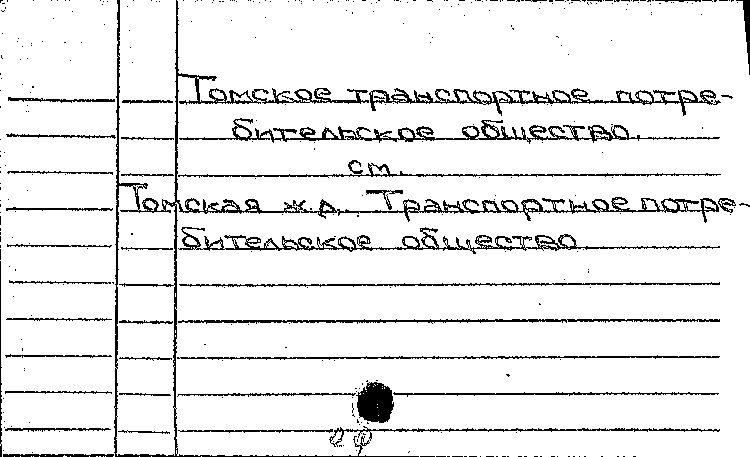 Томское транспортное потре-
бительское общество.
см.
Томская ж.д. Транспортное потре-
бительское общество